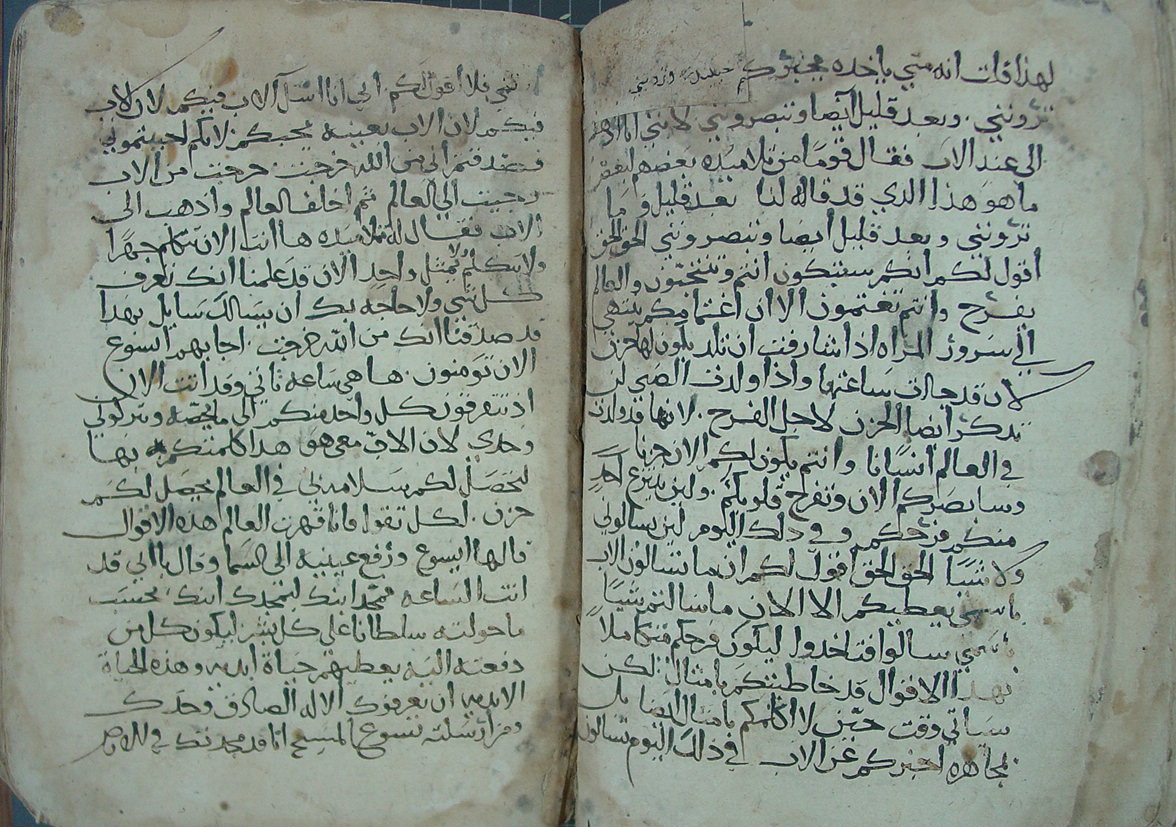 لهذا قلت انه مني ياخذه ويخبركم قليلا وتروني
ترونني . وبعد قليل ايضا وتبصرونني لانني انا
الى عند الاب فقال قوما من تلاميذه بعضهم لبعض
ما هو هذا الذي قد قاله لنا بعد قليل وما
ترونني وبعد قليل ايضا وتبصرونني الحق الحق
اقول لكم انكم ستبكون انتم وتنتحبون والعالم
يفرح وانتم تغتمون الا ان اغتمامكم ينتهي
الى سرور المراه اذا شارفت ان تلد يكون لها حزن
لان قد حانت ساعتها واذا ولدت الصبي لن
تذكر ايضا الحزن لاجل الفرح . لانها قد ولدت
في العالم انسانا وانتم يكون لكم الان حزنا
وسابصركم الان وتفرح قلوبكم . ولن ينزع احد
منكم فرحكم وفي ذلك اليوم لن تسالوني
ولا شيا الحق الحق اقول لكم ان ما تسالون الاب
باسمي يعطيكم الا الان ما سالتم شيا
باسمي سالوا فتاخدوا ليكون فرحكم متكاملا
بهذا الاقوال قد خاطبتكم بامثال لكن
سياتي وقت حين لا اكلمكم بامثال ايضا بل
مجاهره اخبركم عن الاب في ذلك اليوم تسالون
فلا اقول لكم اني انا اسل الاب فيكم لان الاب
فيكم لان الاب بعينه يحبكم لانكم احببتموني
فصدقتم اني من الله خرجت خرجت من الاب
وجيت الى العالم ثم اخلف العالم واذهب الى
الاب فقال له تلاميذه ها انت الان تتكلم جهرا
ولا تتكلم ولا بمثل واحد الان قد علمنا انك تعرف
كل شي ولا حاجه بك ان يسالك سايل بهذا
قد صدقنا انك من الله خرجت . اجابهم ايسوع
الان تومنون . ها هي ساعه تاتي وقد اتت الان
اذ تتفرقون كل واحد منكم الى ما يخصه وتتركوني
وحدي لان الاب معي هو هذا كلمتكم بها
لتحصل لكم سلامه بي في العالم يحصل لكم
حزن . لكن تقوا فانا قهرت العالم هذه الاقوال
قالها ايسوع ورفع عينيه الى السما وقال يا ابي قد
اتت الساعه مجد ابنك ليمجدك ابنك بحسب
ما خولته سلطانا على كل بشر ليكون كل من
دفعته اليه يعطيهم حياة ابديه وهذه الحياة
الابديه ان يعرفوك الاله الصادق وحدك
ومن ارسلته يسوع المسيح انا قد مجدتك في الارض